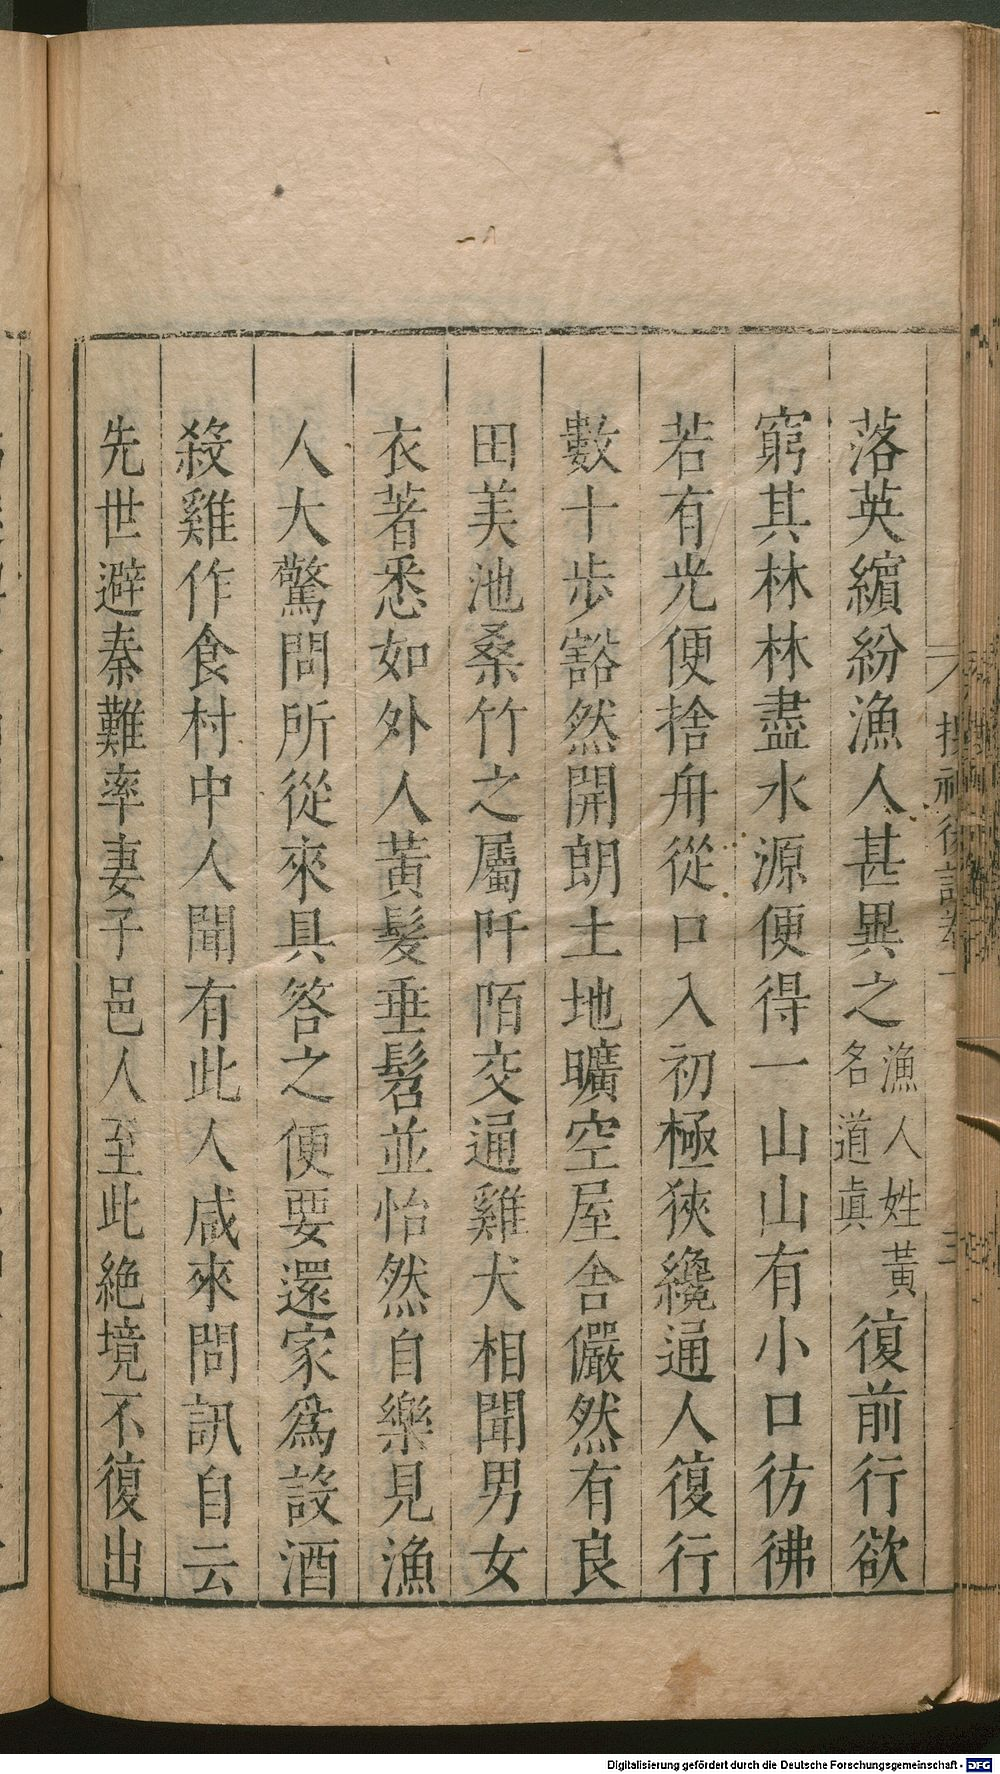 落英繽紛漁人甚異之漁人姓黃名道眞復前行欲
窮其林林盡水源便得一山山有小口彷彿
若有光便捨舟從口入初極狹纔通人復行
數十步豁然開朗土地曠空屋舍儼然有良
田美池桑竹之屬阡陌交通雞犬相聞男女
衣著悉如外人黃髮垂髫並怡然自樂見漁
人大驚問所從來具答之便要還家爲設酒
殺雞作食村中人聞有此人咸來問訊自云
先世避秦難率妻子邑人至此絶境不復出
Digitalisierung gefördert durch die Deutsche Forschungsgemeinschaft - DFG